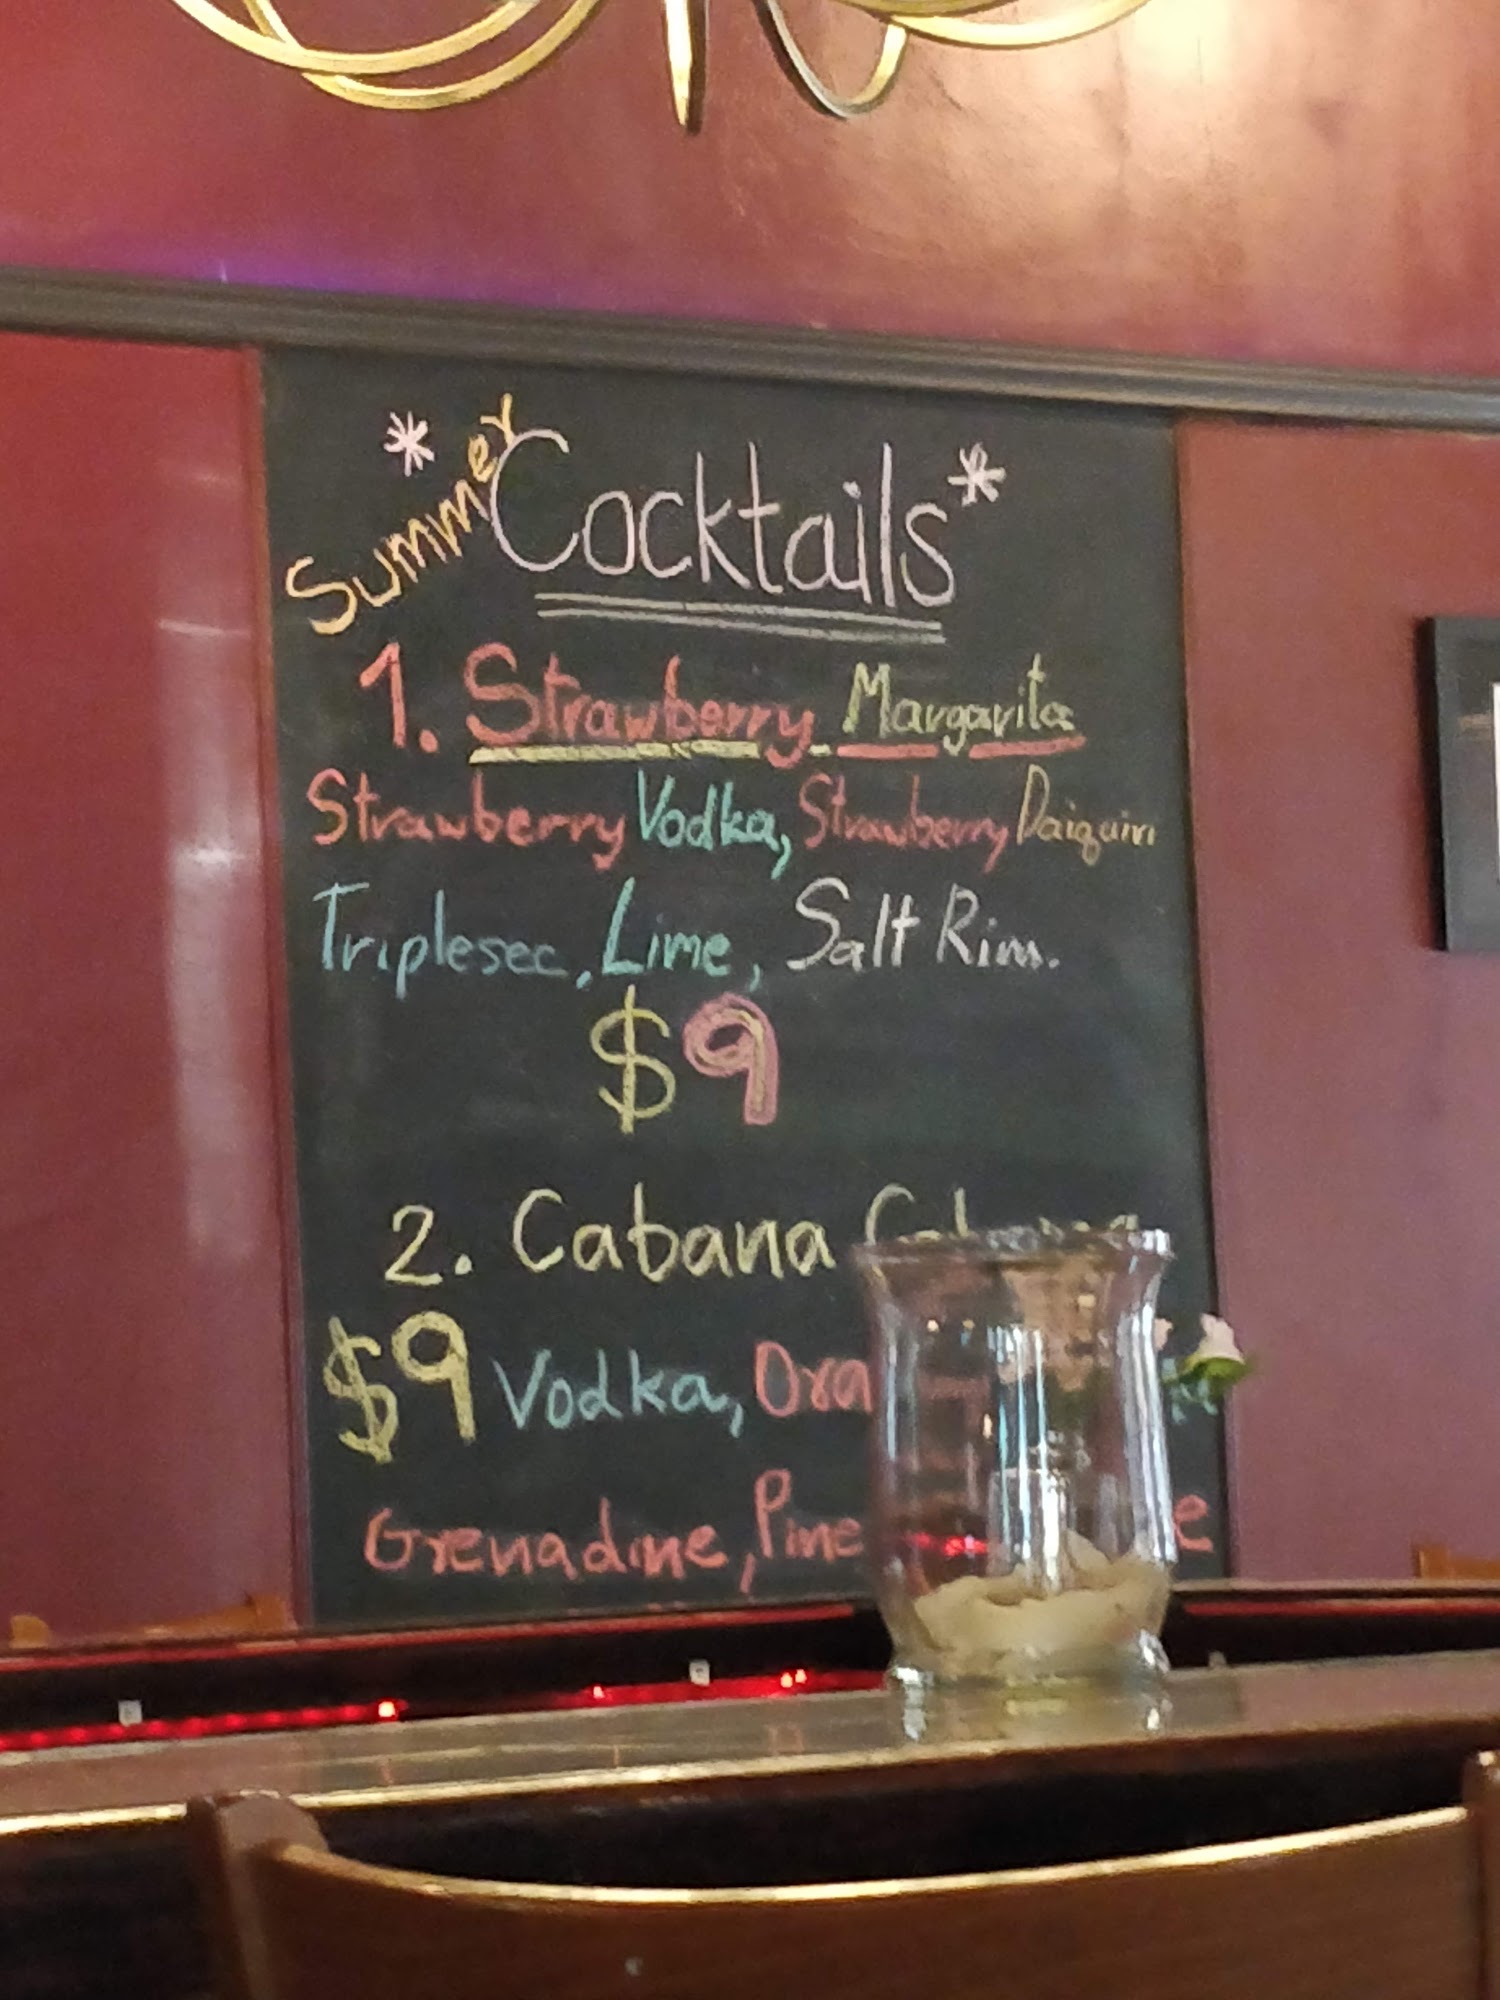 * Summer Cocktails *
1. Strawberry Margarita
Strawberry Vodka, Strawberry Daiquiri
Triplesec, Lime, Salt Rim.
$9
2. Cabana
$9 Vodka,
Grenadine, Pine